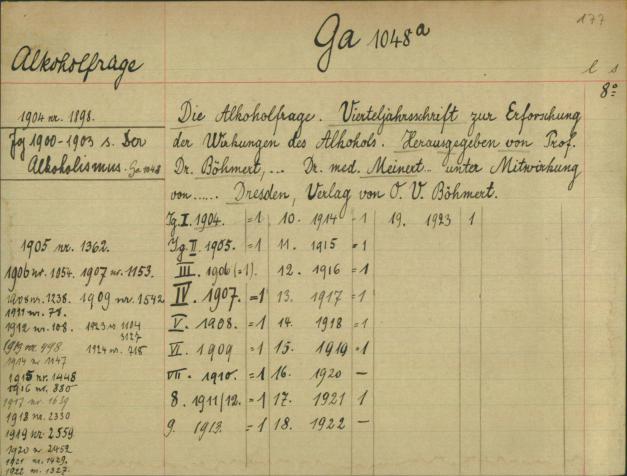 177
Ga 1048a
Alkoholfrage
l s
8°
1904 nr. 1898.
Jg 1900-1903 s. Der
Alkoholismus. Ga 1048
Die Alkoholfrage. Vierteljahrsschrift zur Erforschung
der Wirkungen des Alkohols. Herausgegeben von Prof.
Dr. Böhmert,... Dr. med. Meinert... unter Mitwirkung
von...... Dresden, Verlag von O. V. Böhmert.
Jg. I. 1904. =1 10. 1914 =1 19. 1923 1
Jg. II. 1905. =1 11. 1915 =1
III. 1906 (=1). 12. 1916 =1
IV. 1907. =1 13. 1917 =1
V. 1908. =1 14. 1918 =1
VI. 1909 =1 15. 1919 =1
VII. 1910. =1 16. 1920 —
8. 1911/12. =1 17. 1921 1
9. 1913. =1 18. 1922 —
1905 nr. 1362.
1906 nr. 1054. 1907 nr. 1153.
1908 nr. 1238. 1909 nr. 1542
1911 nr. 78.
1912 nr. 108. 1923 nr 1104
3127
1913 nr. 998 1924 nr. 718
1914 nr 1147
1915 nr. 1448
1916 nr. 880
1917 nr. 1639
1918 nr. 2330
1919 nr. 2559
1920 nr 2452
1921 nr. 1429.
1922 nr. 1327.